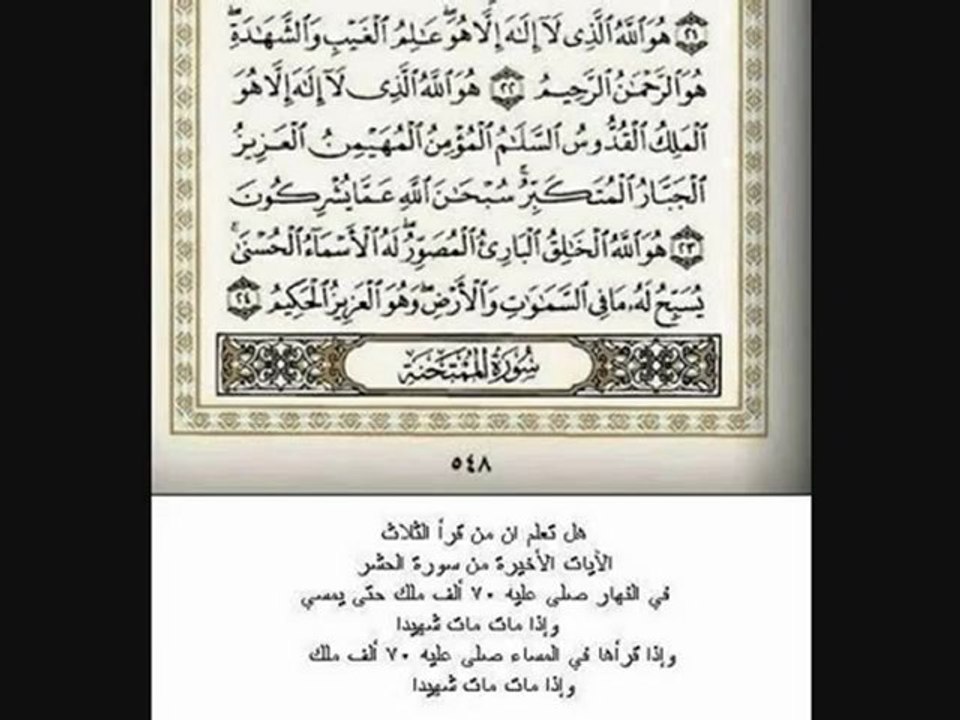 ٢١ هُوَ ٱللَّهُ ٱلَّذِى لَآ إِلَٰهَ إِلَّا هُوَ ۖ عَٰلِمُ ٱلْغَيْبِ وَٱلشَّهَٰدَةِ ۖ
هُوَ ٱلرَّحْمَٰنُ ٱلرَّحِيمُ ٢٢ هُوَ ٱللَّهُ ٱلَّذِى لَآ إِلَٰهَ إِلَّا هُوَ
ٱلْمَلِكُ ٱلْقُدُّوسُ ٱلسَّلَٰمُ ٱلْمُؤْمِنُ ٱلْمُهَيْمِنُ ٱلْعَزِيزُ
ٱلْجَبَّارُ ٱلْمُتَكَبِّرُ ۚ سُبْحَٰنَ ٱللَّهِ عَمَّا يُشْرِكُونَ
٢٣ هُوَ ٱللَّهُ ٱلْخَٰلِقُ ٱلْبَارِئُ ٱلْمُصَوِّرُ ۖ لَهُ ٱلْأَسْمَآءُ ٱلْحُسْنَىٰ ۚ
يُسَبِّحُ لَهُۥ مَا فِى ٱلسَّمَٰوَٰتِ وَٱلْأَرْضِ ۖ وَهُوَ ٱلْعَزِيزُ ٱلْحَكِيمُ ٢٤
سُورَةُ المُمْتَحنَة
٥٤٨
هل تعلم ان من قرأ الثلاث
الآيات الأخيرة من سورة الحشر
في النهار صلى عليه ٧٠ ألف ملك حتى يمسي
وإذا مات مات شهيدا
وإذا قرأها في المساء صلى عليه ٧٠ ألف ملك
وإذا مات مات شهيدا